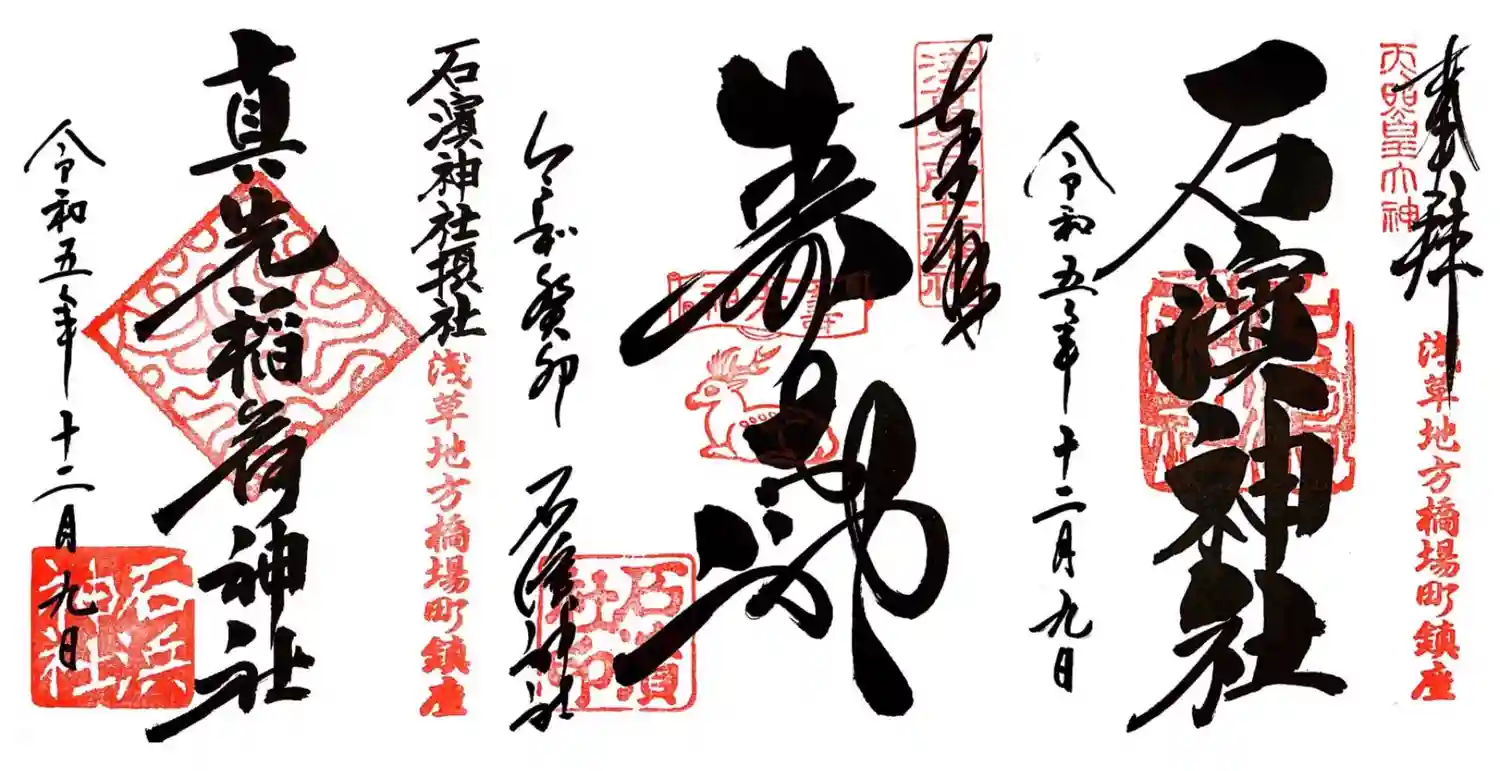 奉拝
天照皇大神
浅草地方橋場町鎮座
石濱神社
令和五年十二月九日
奉拝
浅草名所七福神
壽老神
令和癸卯
石濱神社
石濱神社印
石濱神社摂社
浅草地方橋場町鎮座
真先稲荷神社
令和五年十二月九日
石浜神社